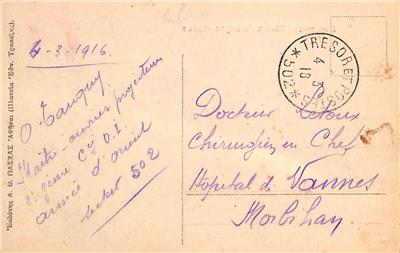 4-3-1916.
O Tanguy
Maître ouvrier projecteur
2e génie Cie D.I.
armée d'Orient
secteur 502
TRESOR ET POSTES
4
3
16
*502*
Docteur Letoux
Chirurgien en Chef
Hopital de Vannes
Morbihan
Ἐκδότης Α. Β. ΠΑΣΧΑΣ Ἀθῆναι (Πλατεῖα Ἐθν. Τραπέζης)